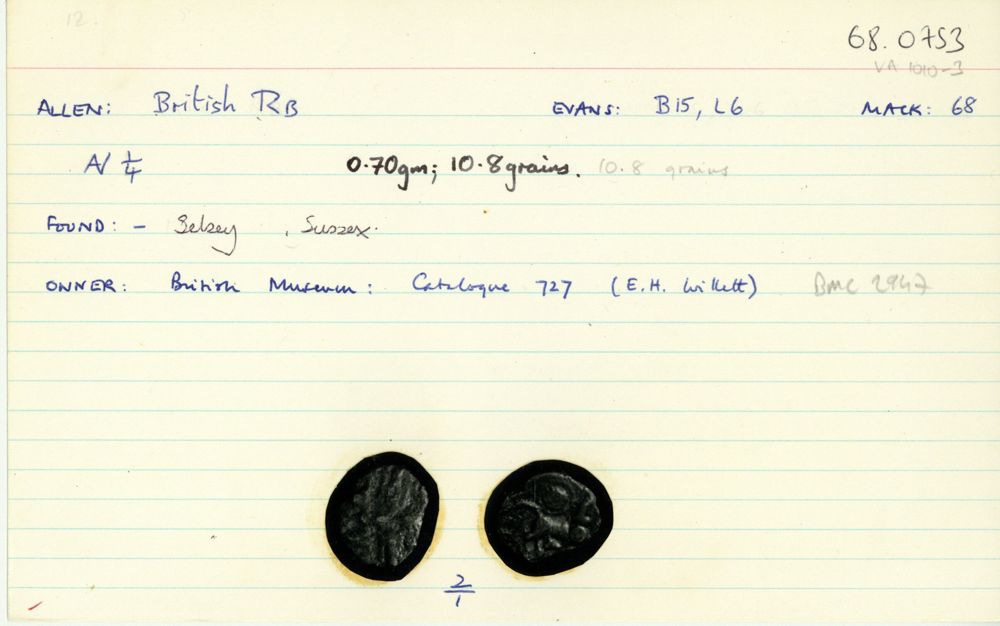 12.
68.0753
VA 1010-3
ALLEN: British RB EVANS: B15, L6 MACK: 68
A/ 1/4 0.70gm; 10.8 grains. 10.8 grains
FOUND: - Selsey, Sussex.
OWNER: British Museum: Catalogue 727 (E.H. Willett) BMC 2947
2/1